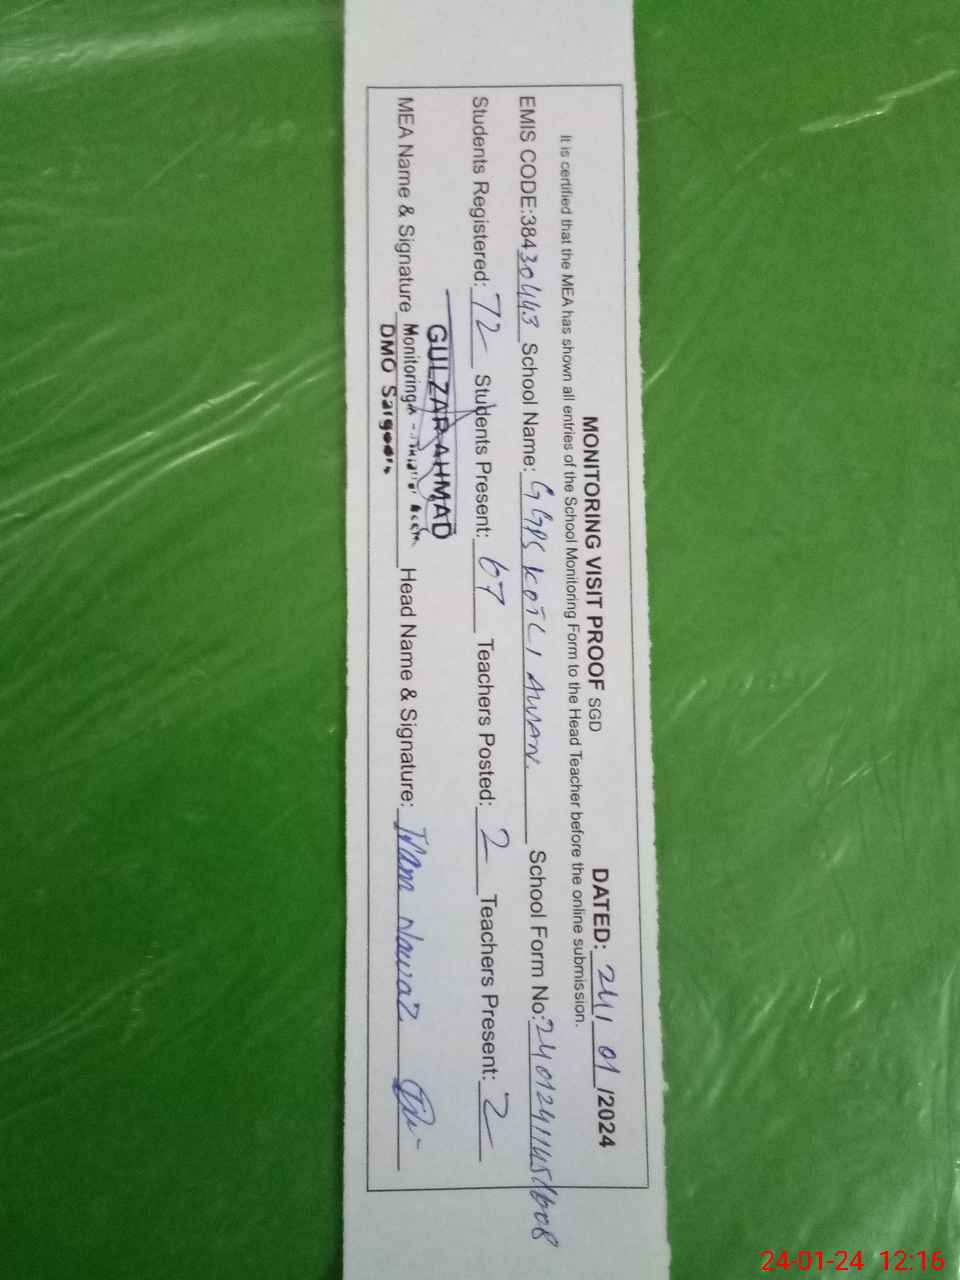 MONITORING VISIT PROOF SGD DATED: 24/01/2024
It is certified that the MEA has shown all entries of the School Monitoring Form to the Head Teacher before the online submission.
EMIS CODE:38430443 School Name: GGPS KOTLI AWAN. School Form No:
Students Registered: 72 Students Present: 67 Teachers Posted: 2 Teachers Present: 2
GULZAR AHMAD
MEA Name & Signature Monitoring Head Name & Signature: Nawaz
DMO Sargodha
24-01-24 12:16